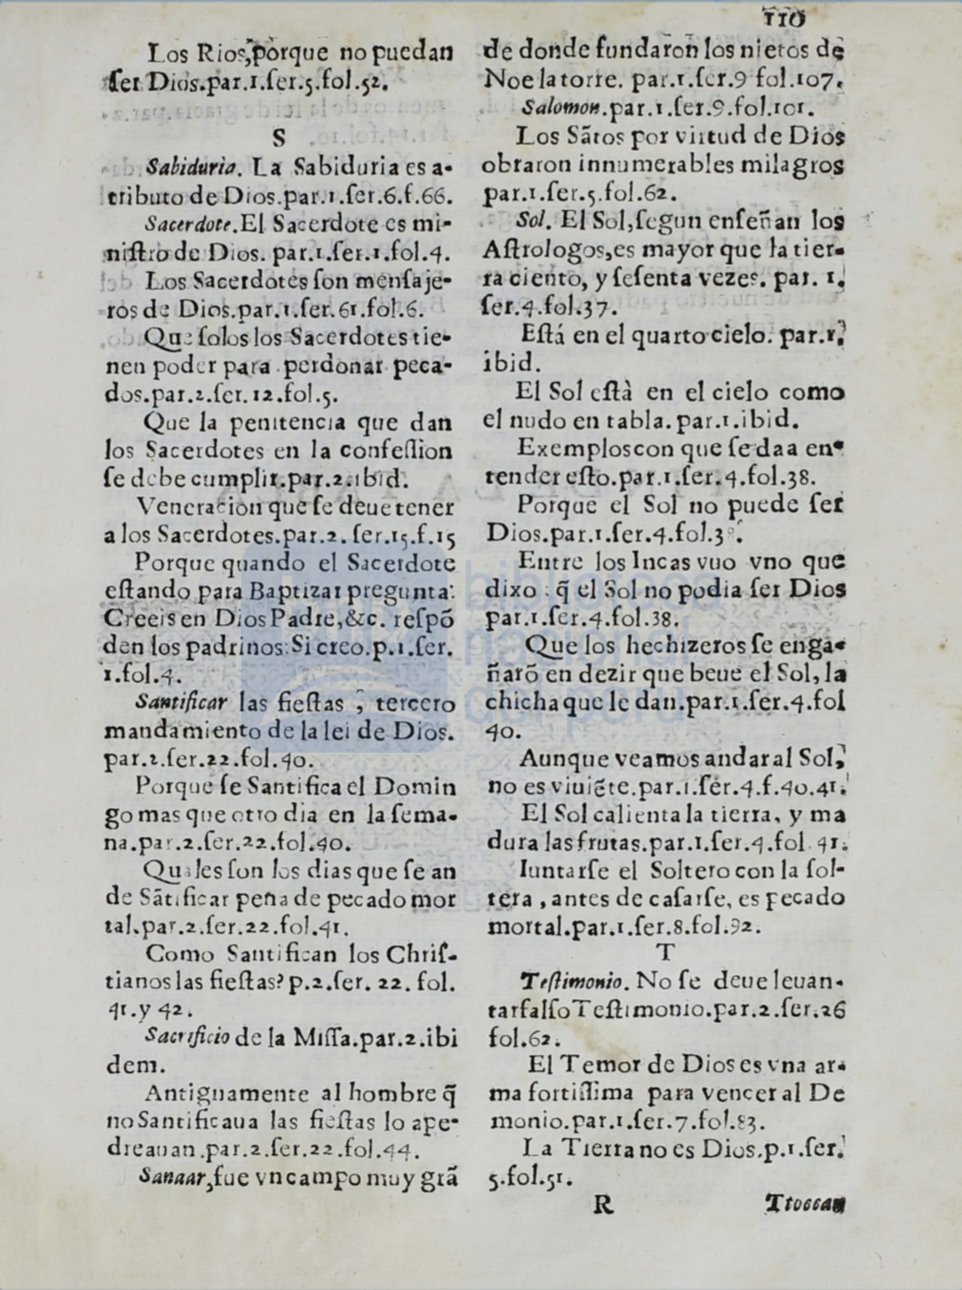 110
Los Rios, porque no puedan
ſer Dios.par.1.ſer.5.fol.52.
S
Sabiduria. La Sabiduria es a-
tributo de Dios.par.1.ſer.6.f.66.
Sacerdote.El Sacerdote es mi-
niſtro de Dios. par.1.ſer.1.fol.4.
Los Sacerdotes ſon menſaje-
ros de Dios.par.1.ſer.61.fol.6.
Que ſolos los Sacerdotes tie-
nen poder para perdonar peca-
dos.par.2.ſer.12.fol.5.
Que la penitencia que dan
los Sacerdotes en la confeſſion
ſe debe cumplir.par.2.ibid.
Veneracion que ſe deue tener
a los Sacerdotes.par.2. ſer.15.f.15
Porque quando el Sacerdote
eſtando para Baptizar pregunta:
Creeis en Dios Padre,&c. reſpõ
den los padrinos:Si creo.p.1.ſer.
1.fol.4.
Santificar las fieſtas , tercero
mandamiento de la lei de Dios.
par.2.ſer.22.fol.40.
Porque ſe Santifica el Domin
go mas que otro dia en la ſema-
na.par.2.ſer.22.fol.40.
Quales ſon los dias que ſe an
de Sãtificar pena de pecado mor
tal.par.2.ſer.22.fol.41.
Como Santifican los Chriſ-
tianos las fieſtas? p.2.ſer. 22. fol.
41.y 42.
Sacrificio de la Miſſa.par.2.ibi
dem.
Antiguamente al hombre q̃
no Santificaua las fieſtas lo ape-
dreauan.par.2.ſer.22.fol.44.
Sanaar,fue vn campo muy grã
de donde fundaron los nietos de
Noe la torre. par.1.ſer.9 fol.107.
Salomon.par.1.ſer.9.fol.101.
Los Sãtos por virtud de Dios
obraron innumerables milagros
par.1.ſer.5.fol.62.
Sol. El Sol,ſegun enſeñan los
Aſtrologos,es mayor que la tier-
ra ciento, y ſeſenta vezes. par. 1.
ſer.4.fol.37.
Eſtá en el quarto cielo. par.1.
ibid.
El Sol eſtà en el cielo como
el nudo en tabla.par.1.ibid.
Exemplos con que ſe da a en-
tender eſto.par.1.ſer.4.fol.38.
Porque el Sol no puede ſer
Dios.par.1.ſer.4.fol.3
Entre los Incas vuo vno que
dixo : q̃ el Sol no podia ſer Dios
par.1.ſer.4.fol.38.
Que los hechizeros ſe enga-
ñarõ en dezir que beue el Sol, la
chicha que le dan.par.1.ſer.4.fol
40.
Aunque veamos andar al Sol,
no es viuiẽte.par.1.ſer.4.f.40.41.
El Sol calienta la tierra, y ma
dura las frutas.par.1.ſer.4.fol.41.
Iuntarſe el Soltero con la ſol-
tera , antes de caſarſe, es pecado
mortal.par.1.ſer.8.fol.92.
T
Teſtimonio. No ſe deue leuan-
tar falſo Teſtimonio.par.2.ſer.26
fol.62.
El Temor de Dios es vna ar-
ma fortiſſima para vencer al De
monio.par.1.ſer.7.fol.83.
La Tierra no es Dios.p.1.ſer.
5.fol.51.
R Ttoccan